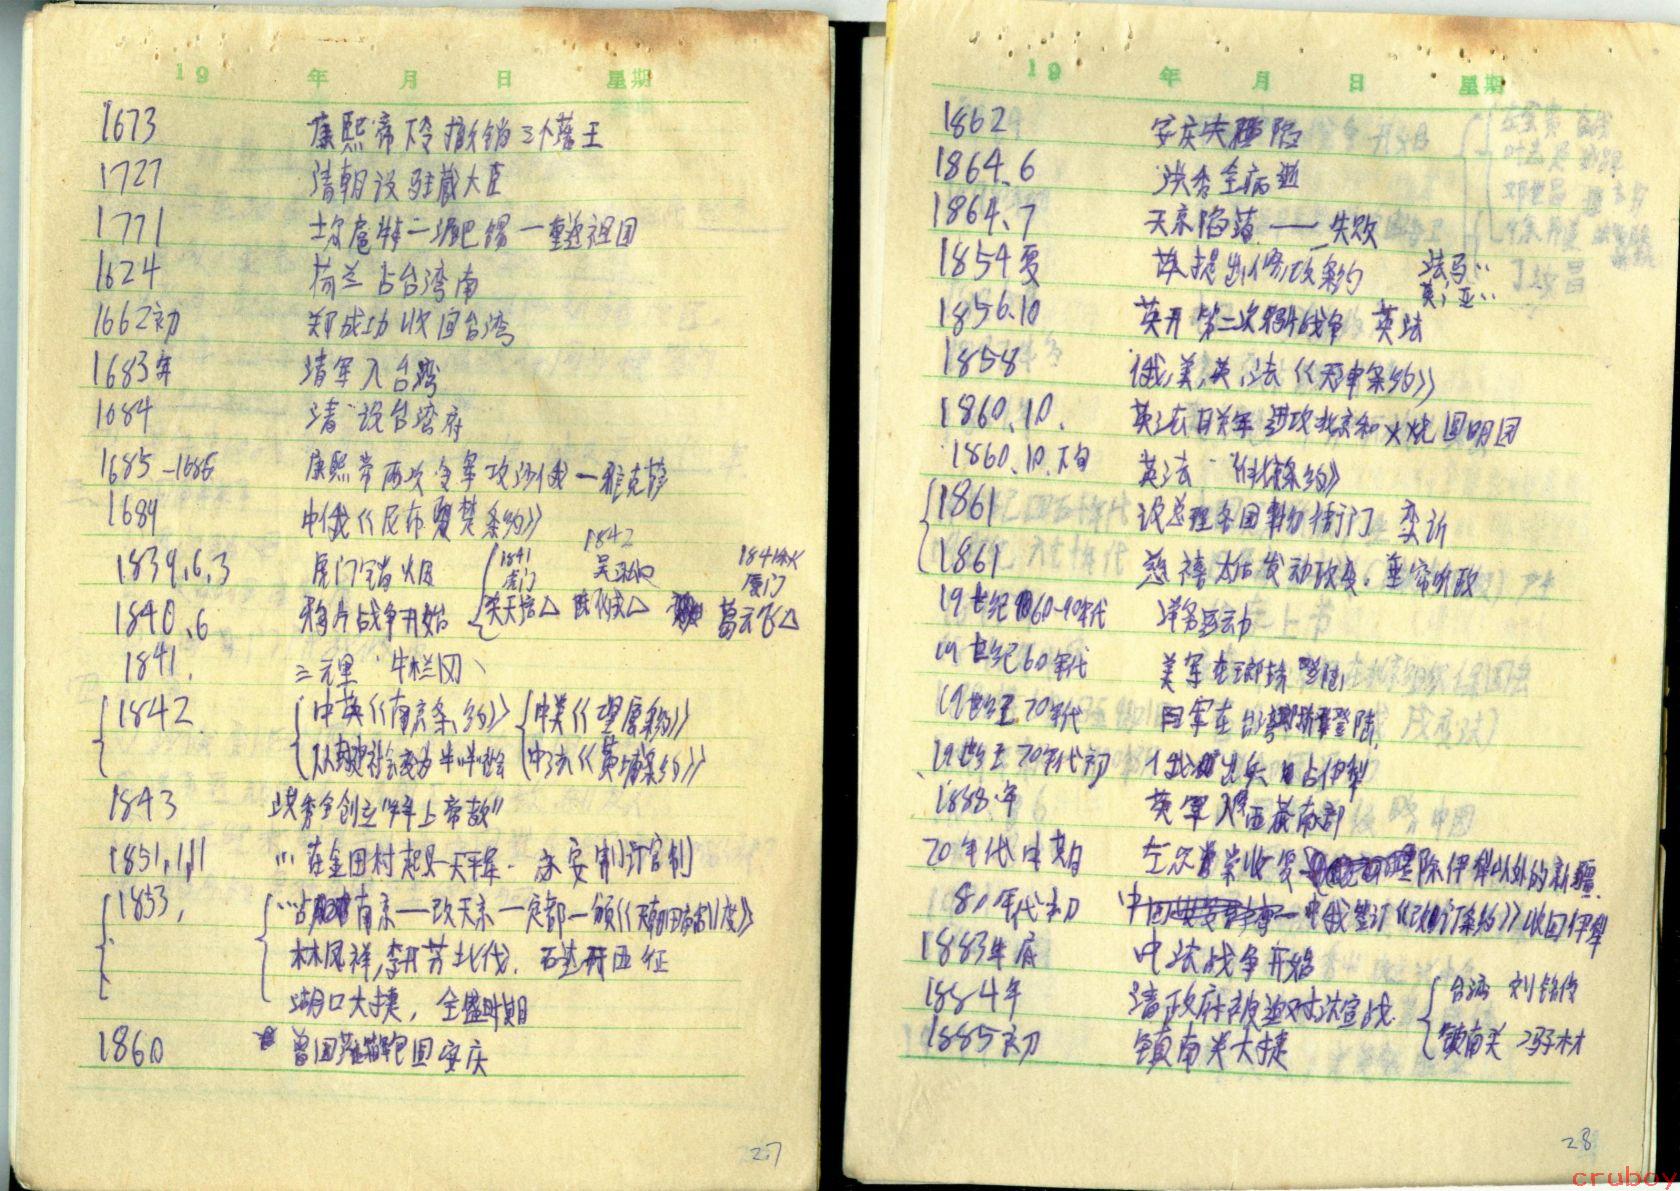 19 年 月 日 星期
1673 康熙帝下令撤销三个藩王
1727 清朝设驻藏大臣
1771 土尔扈特—渥巴锡—重返祖国
1624 荷兰占台湾南
1662初 郑成功收回台湾
1683年 清军入台湾
1684 清设台湾府
1685-1686 康熙帝两次令军攻沙俄—雅克萨
1689 中俄《尼布楚条约》
1839,6,3 虎门销烟
1841 虎门 1842 吴淞口 1841 厦门
1840,6 鸦片战争开始 关天培△ 陈化成△ 葛云飞△
1841, 三元里 牛栏冈
1842 中英《南京条约》 中美《望厦条约》
从封建社会变为半半社会 中法《黄埔条约》
1843 洪秀全创立"拜上帝教"
1851,1,11 … 在金田村起义—天平军- 永安制订官制
1853, …占南京—改天京—定都—颁《天朝田亩制度》
林凤祥,李开芳北伐. 石达开西征
湖口大捷, 全盛时期
1860 曾国荃包围安庆
27
19 年 月 日 星期
1862 安庆失陷
1864.6 洪秀全病逝
1864.7 天京陷落 — 失败
1854夏 提出修改条约 法马… 英,亚…
1856.10 英开第二次鸦片战争 英法
1858 俄,美,英,法《天津条约》
1860,10. 英法联军进攻北京和火烧圆明园
1860.10.下旬 英法《北京条约》
1861 设总理各国事务衙门 奕訢
1861 慈禧太后发动政变,垂帘听政
19世纪60-90年代 洋务运动
19世纪60年代 美军在琅峤登陆
19世纪70年代 日军在台湾琅峤登陆
19世纪70年代初 俄出兵占伊犁
1888.年 英军入西藏南部
70年代中期 左宗棠收复除伊犁以外的新疆.
80年代初 中俄签订《改订条约》收回伊犁
1883年底 中法战争开始
1884年 清政府被迫对法宣战. 台湾 刘铭传
1885初 镇南关大捷 镇南关 冯子材
28
cruboy